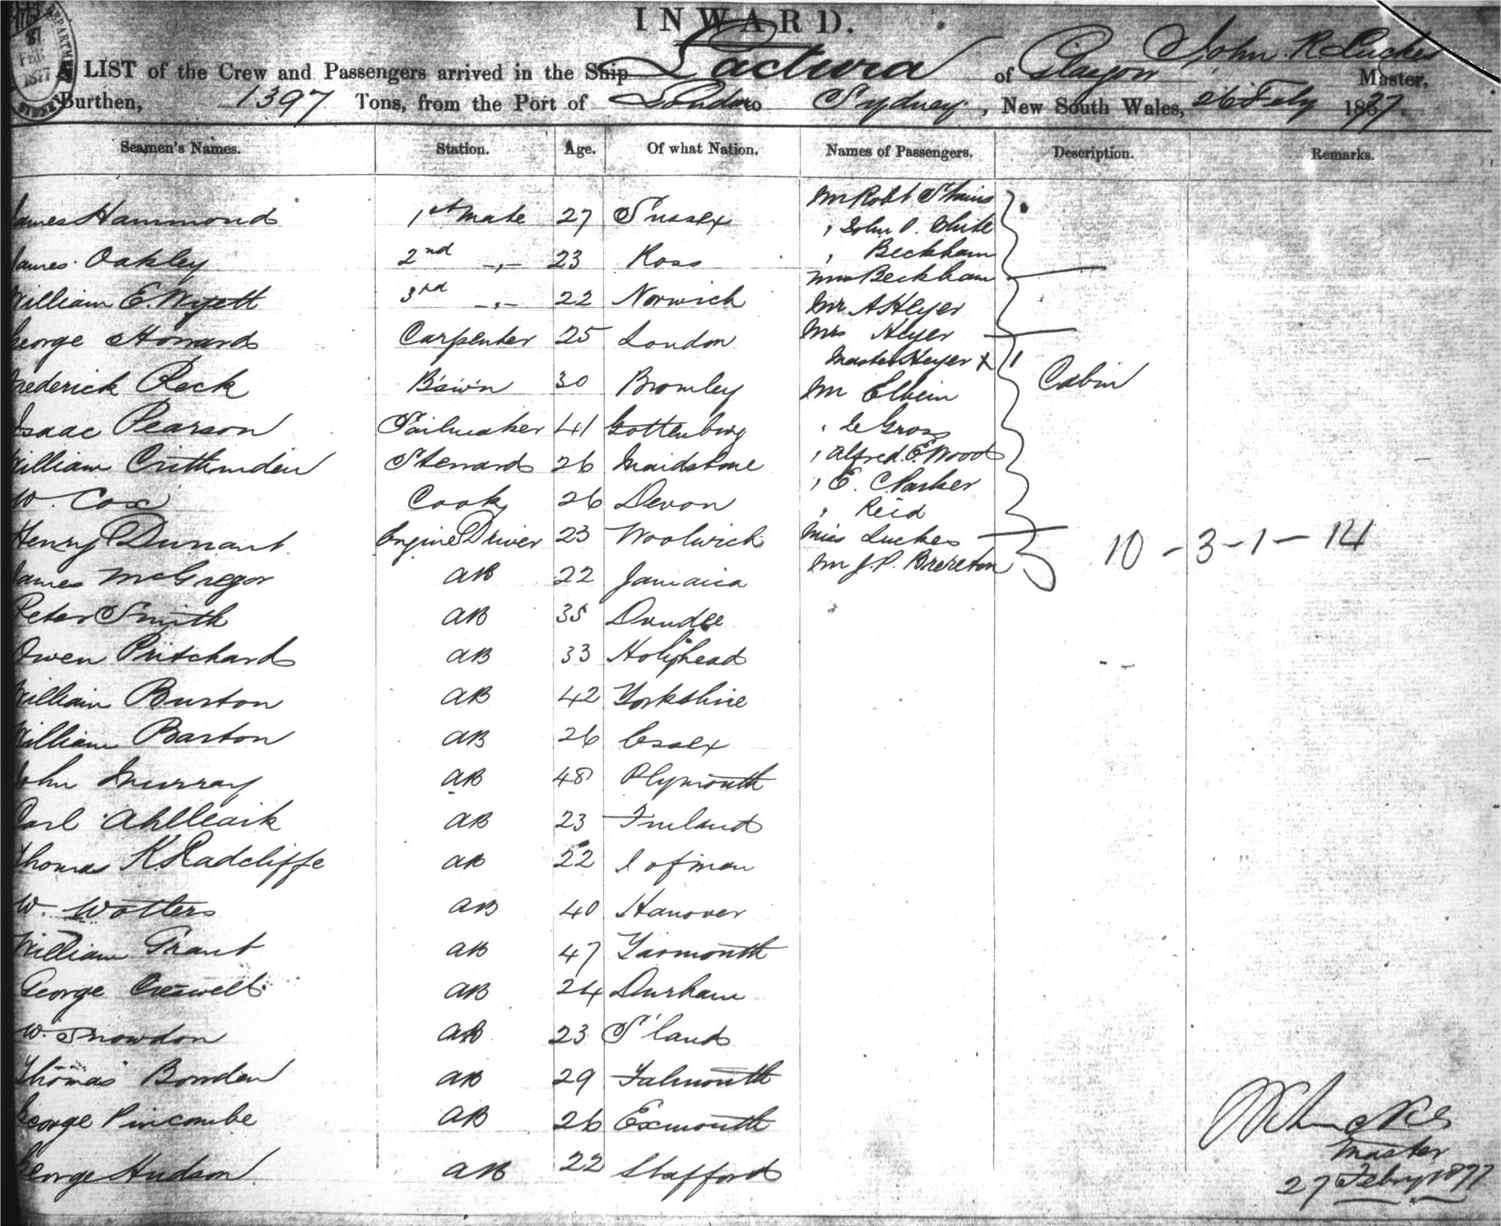 INWARD.
LIST of the Crew and Passengers arrived in the Ship Lactura of Glasgow John R Luckes Master,
Burthen, 1397 Tons, from the Port of London to Sydney, New South Wales, 26 Feby 1877.
Seamen's Names. Station. Age. Of what Nation. Names of Passengers. Description. Remarks.
James Hammond 1st Mate 27 Sussex
James Oakley 2nd -,,- 23 Ross
William E. Wyatt 3rd -,,- 22 Norwich
George Howard Carpenter 25 London
Frederick Reck Bsw'n 30 Bromley
Isaac Pearson Sailmaker 41 Gottenburg
William Steward 26 Maidstone
W. Cox Cook 26 Devon
Henry Durrant Engine Driver 23 Woolwich
James McGregor AB 22 Jamaica
Peter Smith AB 35 Dundee
Owen Pritchard AB 33 Holyhead
William Burton AB 42 Yorkshire
William Barton AB 26 Essex
John Murray AB 48 Plymouth
Carl AB 23 Finland
Thomas K. Radcliffe AB 22 I of Man
W. Wolters AB 40 Hanover
William Grant AB 47 Yarmouth
George Creswell AB 24 Durham
W. Snowdon AB 23 S'land
Thomas Bowden AB 29 Falmouth
George Pincombe AB 26 Exmouth
George Hudson AB 22 Stafford
Mr Robt
" John
" Beckham
Mrs Beckham
Mr A Heyer
Mrs Heyer
Master Heyer x 1
Mr
" Le Gros
" Alfred E. Wood
" E. C Parker
" Reid
Miss Luckes
Mr J. P. Brereton
Cabin
10 - 3 - 1 - 14
Luckes
Master
27 Feby 1877